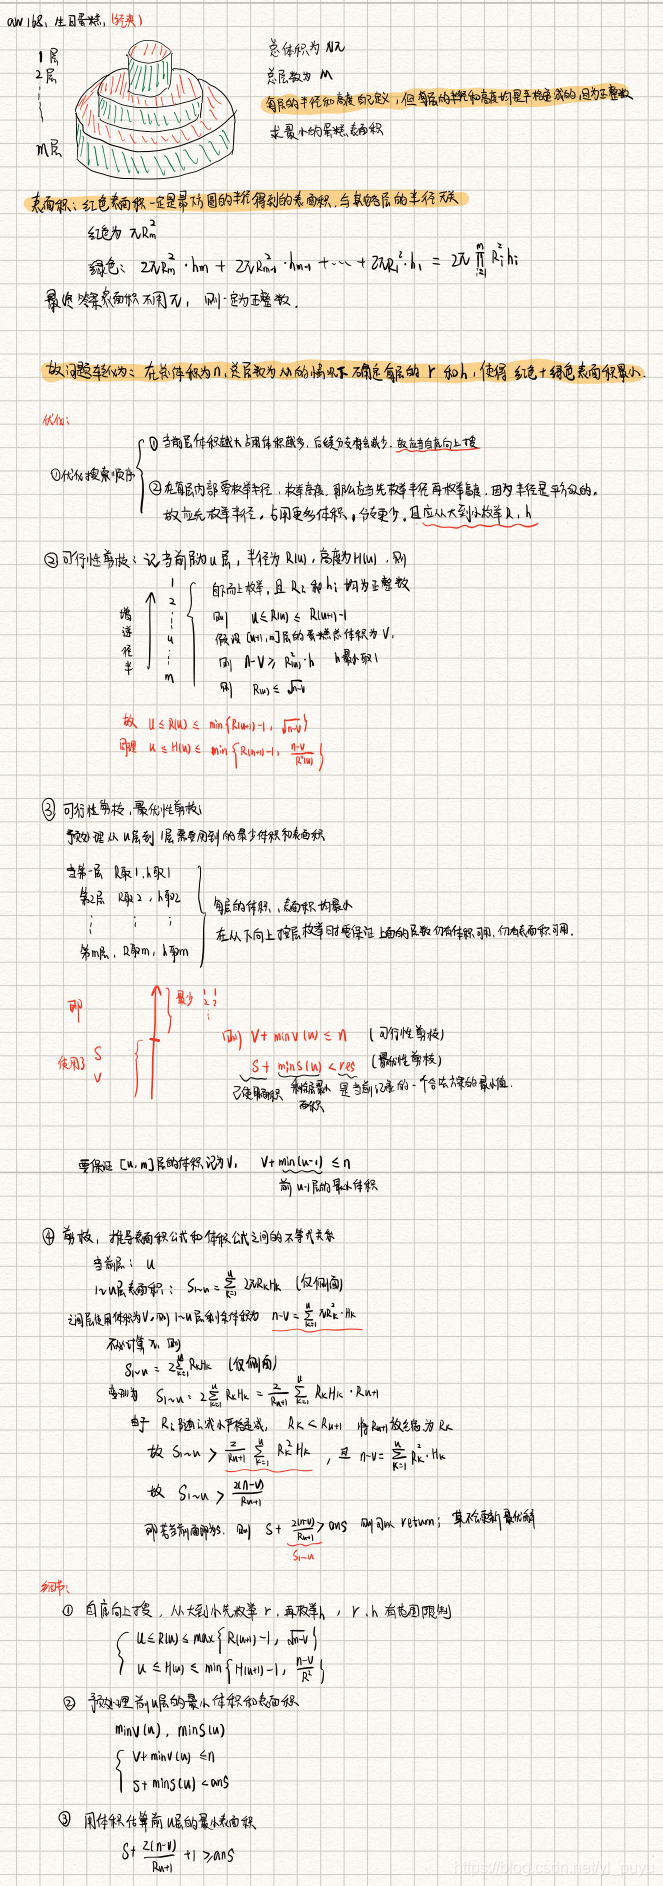 aw 168. 生日蛋糕. (经典)
1层
2层
m层
总体积为 Nπ
总层数为 M
每层的半径和高度自己定义, 但每层的半径和高度均是严格递减的, 且为正整数
求最小的蛋糕表面积
表面积: 红色表面积一定是最下方圆的半径得到的表面积, 与其他层的半径无关
红色为 πRm²
绿色: 2πRm²·hm + 2πRm-1²·hm-1 + ... + 2πR1²·h1 = 2π ∏(i=1,m) Ri²hi
最后答案表面积不用π, 则一定为正整数.
故问题转化为: 在总体积为n, 总层数为m的情况下确定每层的 r 和 h, 使得 红色+绿色表面积最小.
优化:
①优化搜索顺序
① 当前层体积越大占用体积越多, 后续分支会减少. 故应当自底向上搜
② 在每层内部需枚举半径, 枚举高度, 那么应当先枚举半径再枚举高度, 因为半径是平方级的.
故应先枚举半径, 占用更多体积, 分支更少. 且应从大到小枚举 R, h
② 可行性剪枝: 记当前层为 u 层, 半径为 R(u), 高度为 H(u), 则
半径递增
1
2
u
m
自下而上枚举, 且 Ri 和 hi 均为正整数
则 u ≤ R(u) ≤ R(u+1)-1
假设 [u+1, m]层的蛋糕总体积为 V,
则 n-V ≥ R(u)²·h h最小取1
则 R(u) ≤ √n-v
故 u ≤ R(u) ≤ min{R(u+1)-1, √n-v}
同理 u ≤ H(u) ≤ min{R(u+1)-1, n-v/R²(u)}
③ 可行性剪枝, 最优性剪枝:
预处理从 u层到 1层需要用到的最少体积和表面积
当第一层 R取1, h取1
第2层 R取2, h取2
第m层, R取m, h取m
每层的体积, 表面积均最小
在从下向上按层枚举时要保证 上面的层数仍有体积可用, 仍有表面积可用.
即
最少 1 1
2 2
使用了 S
V
则 V + minv(u) ≤ n (可行性剪枝)
S + mins(u) < res (最优性剪枝)
已使用面积 剩余层最小面积 是当前记录的一个合法方案的最小值.
要保证 [u, m]层的体积记为V, V + min(u-1) ≤ n
前 u-1层的最小体积
④ 剪枝, 推导表面积公式和体积公式之间的不等式关系
当前层: u
1~u层表面积: S1~u = ∑(k=1,u) 2πRkHk (仅侧面)
之间层使用体积为V, 则 1~u层剩余体积为 n-V = ∑(k=1,u) πRk²·Hk
不必计算π, 则
S1~u = 2∑(k=1,u) RkHk (仅侧面)
变形为 S1~u = 2∑(k=1,u) RkHk = 2/Ru+1 ∑(k=1,u) RkHk·Ru+1
由于 Ri 随i减小严格递减, Rk < Ru+1 将Ru+1放缩为Rk
故 S1~u > 2/Ru+1 ∑(k=1,u) Rk²Hk, 且 n-v = ∑(k=1,u) Rk²·Hk
故 S1~u > 2(n-v)/Ru+1
即若当前面积为S, 则 S + 2(n-v)/Ru+1 > ans 则可以 return;
S1~u
细节:
① 自底向上搜, 从大到小先枚举 r, 再枚举h, r, h 有范围限制
u ≤ R(u) ≤ max{R(u+1)-1, √n-v}
u ≤ H(u) ≤ min{H(u+1)-1, n-v/R²}
② 预处理前u层的最小体积和表面积
minv(u), mins(u)
v + minv(u) ≤ n
s + mins(u) < ans
③ 用体积估算前 u层的最小表面积
S + 2(n-v)/Ru+1 + 1 ≥ ans